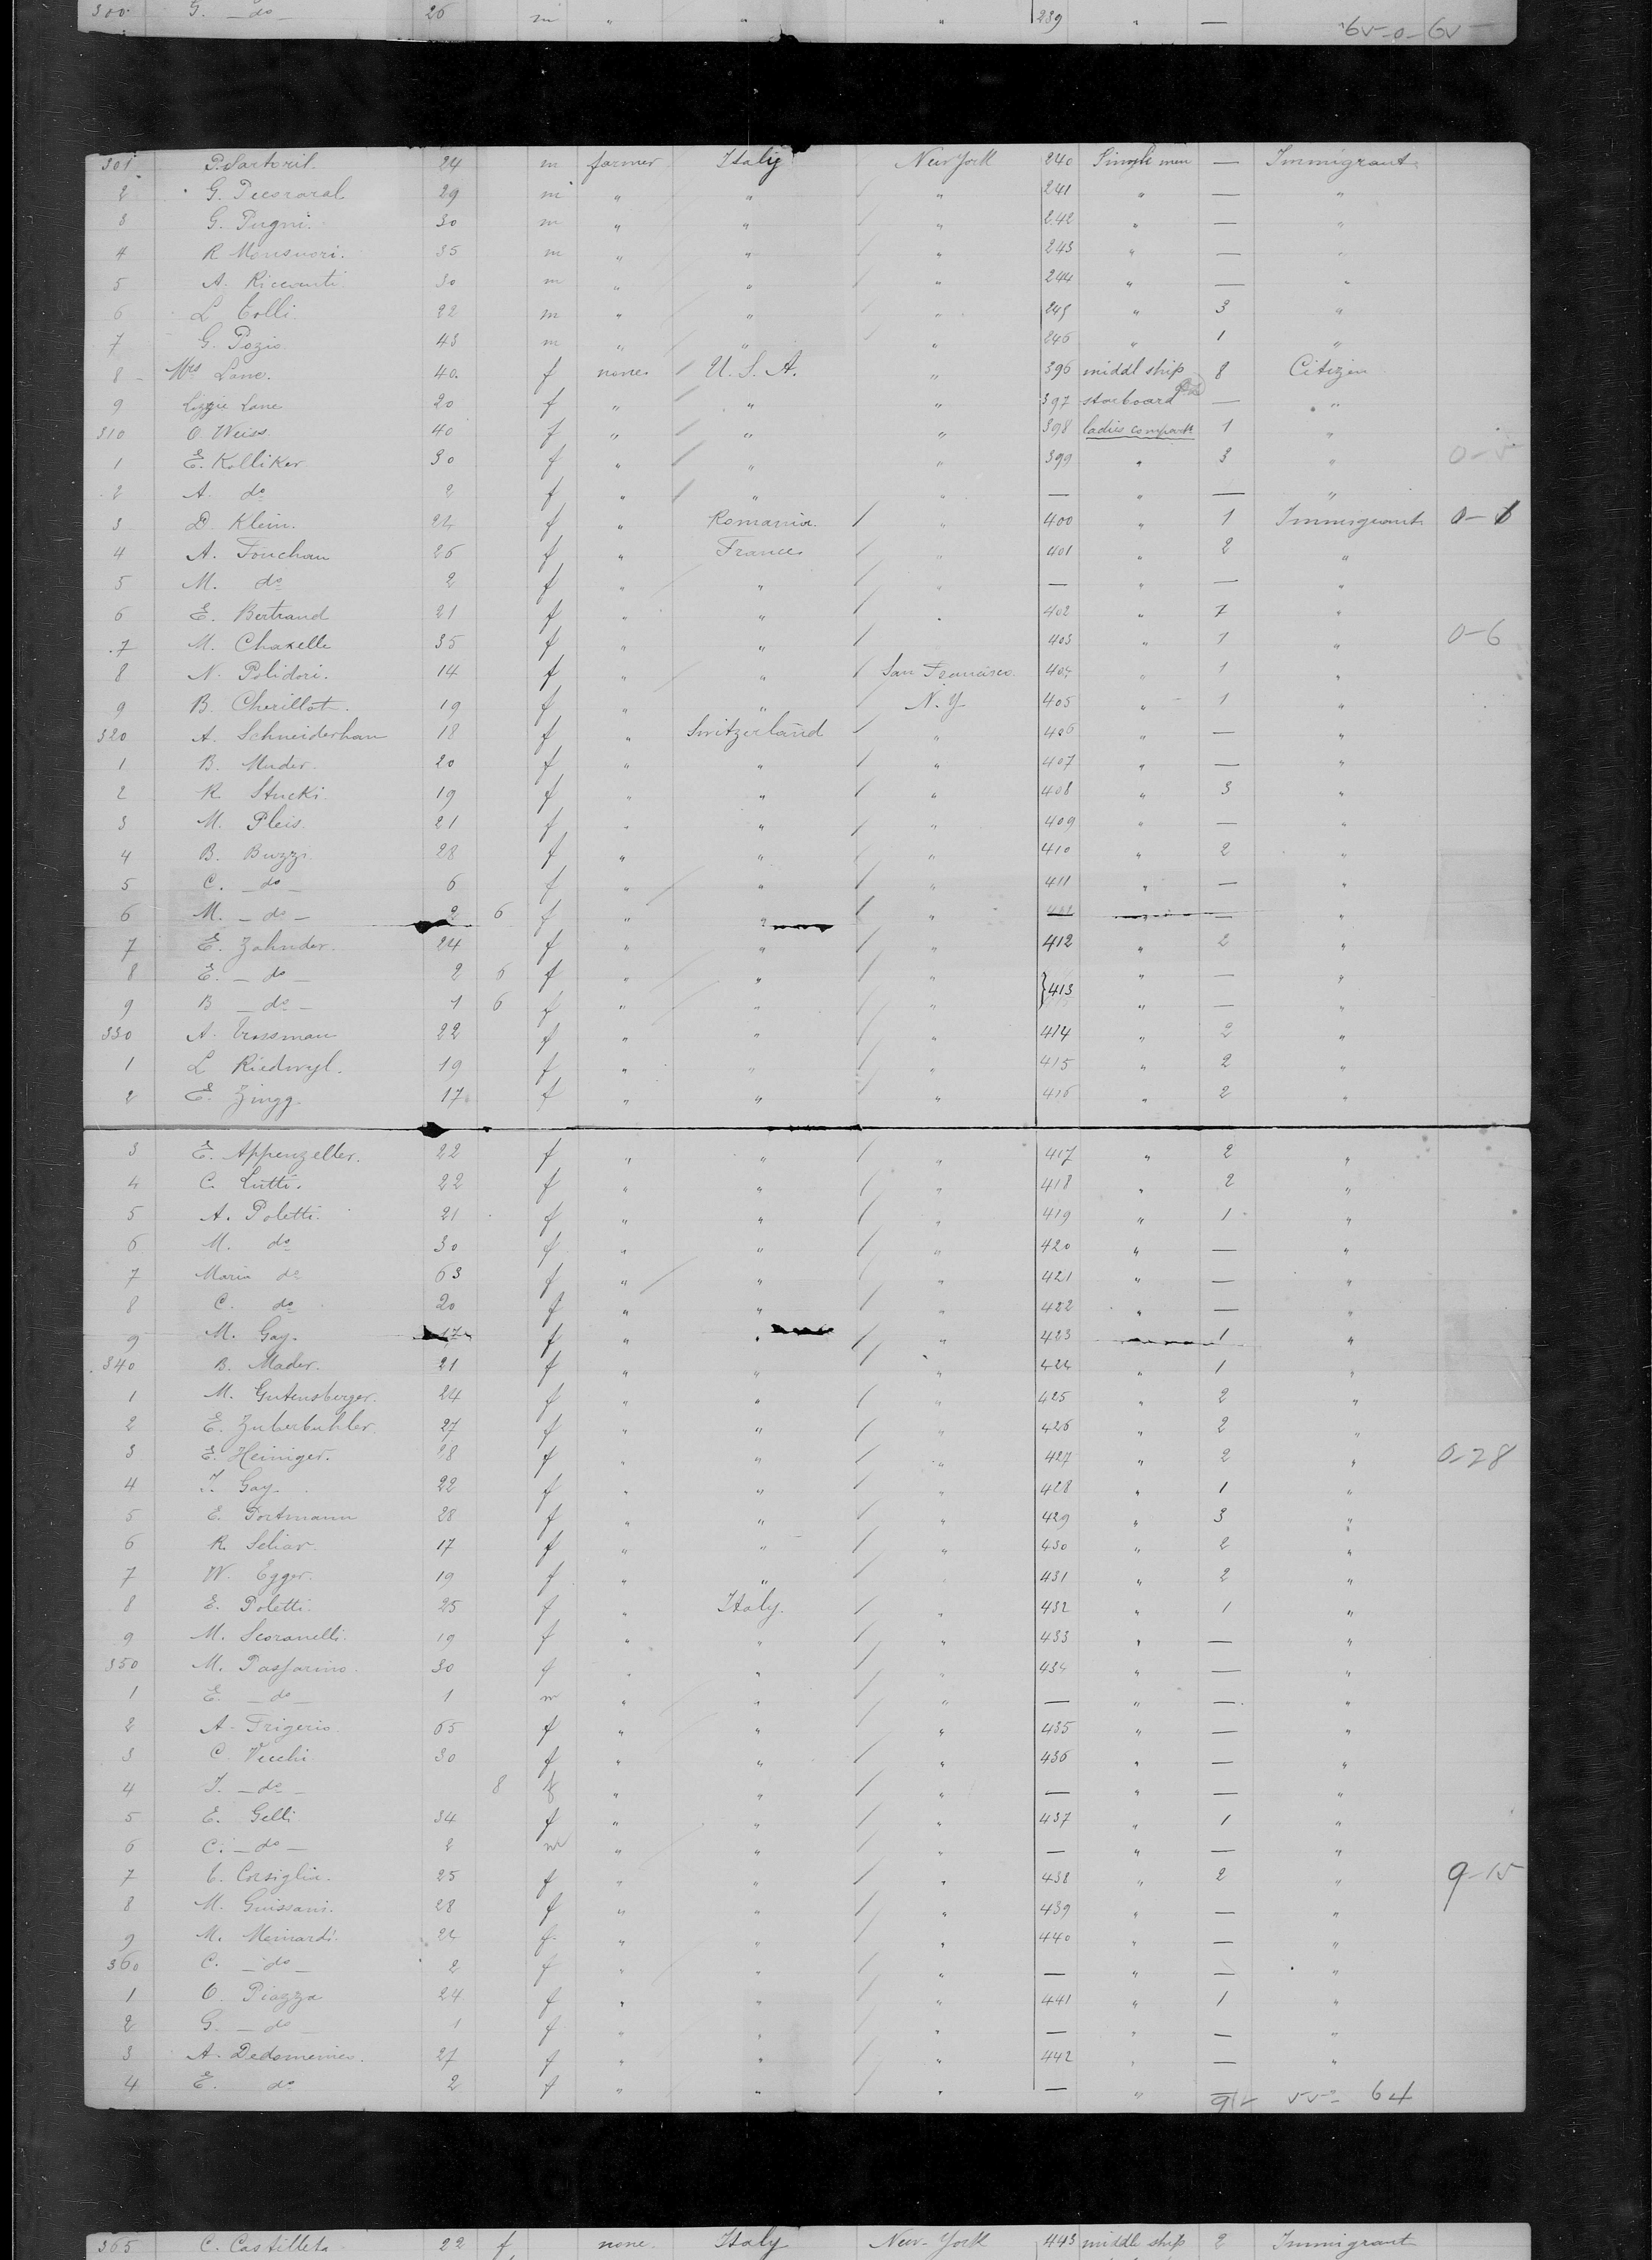 300 G. — do — 26 m " " " 239 " —
6v-0-6v
301 P. Sartoril. 24 m farmer Italy New York 240 Single men — Immigrant
2 G. 29 m " " " 241 " — "
3 G. Pugni. 30 m " " " 242 " — "
4 R. Monsuori. 35 m " " " 243 " — "
5 A. 30 m " " " 244 " — "
6 L. Colli 22 m " " " 245 " 3 "
7 G. Pozio 43 m " " " 246 " 1 "
8 Mrs Lane. 40. f none U.S.A. " 396 middl ship 8 Citizen
9 Lizzie Lane 20 f " " " 397 starboard — "
310 O. Weiss. 40 f " " " 398 ladies compart 1 "
1 E. Kolliker 30 f " " " 399 " 3 "
2 A. do 2 f " " " — " — "
3 D. Klein. 24 f " Romania " 400 " 1 Immigrant
4 A. Fouchon 26 f " France " 401 " 2 "
5 M. do 2 f " " " — " — "
6 E. Bertrand 21 f " " " 402 " 7 "
7 M. Chazelle 35 f " " 403 " 1 " 0-6
8 N. Polidori. 14 f " " San Francisco 404 " 1 "
9 B. Cherillot. 19 f " " N.Y 405 " 1 "
320 A. Schneiderhan 18 f " Switzerland " 406 " — "
1 B. Muder. 20 f " " " 407 " — "
2 R. Stucki 19 f " " " 408 " 3 "
3 M. Pleis. 21 f " " " 409 " — "
4 B. Buzzi 28 f " " " 410 " 2 "
5 C. — do — 6 f " " " 411 " — "
6 M. — do — 2 6 f " " " — "
7 E. Zahnder. 24 f " " " 412 " 2 "
8 E. — do — 2 6 f " " " } 413 " — "
9 B — do — 1 6 f " " " " — "
330 A. 22 f " " " 414 " 2 "
1 L. Riedwyl. 19 f " " " 415 " 2 "
2 E. Zingg. 17 f " " " 416 " 2 "
3 E. Appenzeller. 22 f " " " 417 " 2 "
4 C. Lutti. 22 f " " " 418 " 2 "
5 A. Poletti. 21 f " " " 419 " 1 "
6 M. do 30 f " " " 420 " — "
7 Maria do 63 f " " " 421 " — "
8 C. do 20 f " " " 422 " — "
9 M. Gay. 17 f " " " 423 1 "
340 B. Mader. 21 f " " " 424 " 1 "
1 M. Gutensberger. 24 f " " " 425 " 2 "
2 E. Zuberbuhler. 27 f " " " 426 " 2 "
3 E. Heiniger. 28 f " " " 427 " 2 " 0-28
4 J. Gay. 22 f " " " 428 " 1 "
5 E. Portmann 28 f " " " 429 " 3 "
6 R. Seliar. 17 f " " " 430 " 2 "
7 W. Egger. 19 f " " 431 " 2 "
8 E. Poletti. 25 f " Italy. " 432 " 1 "
9 M. Scoranelli. 19 f " " " 433 " — "
350 M. Passarino. 30 f " " " 434 " — "
1 E. — do — 1 m " " " — " — "
2 A. Frigerio. 65 f " " " 435 " — "
3 C. Vecchi. 30 f " " " 436 " — "
4 J. — do — 8 f " " " — " — "
5 E. Gelli 34 f " " " 437 " 1 "
6 C. — do — 2 m " " " — " — "
7 C. Corsiglia. 25 f " " " 438 " 2 " 9-15
8 M. Guissani. 28 f " " " 439 " — "
9 M. Meinardi. 24 f " " " 440 " — "
360 C. — do — 2 f " " " — " — "
1 O. Piazza 24 f " " " 441 " 1 "
2 G. — do — 1 f " " " — " — "
3 A. Dedomenico. 27 f " " " 442 " — "
4 E. do 2 f " " " — " —
64
365 C. Castilleta 22 f none Italy New-York 443 middle ship 2 Immigrant